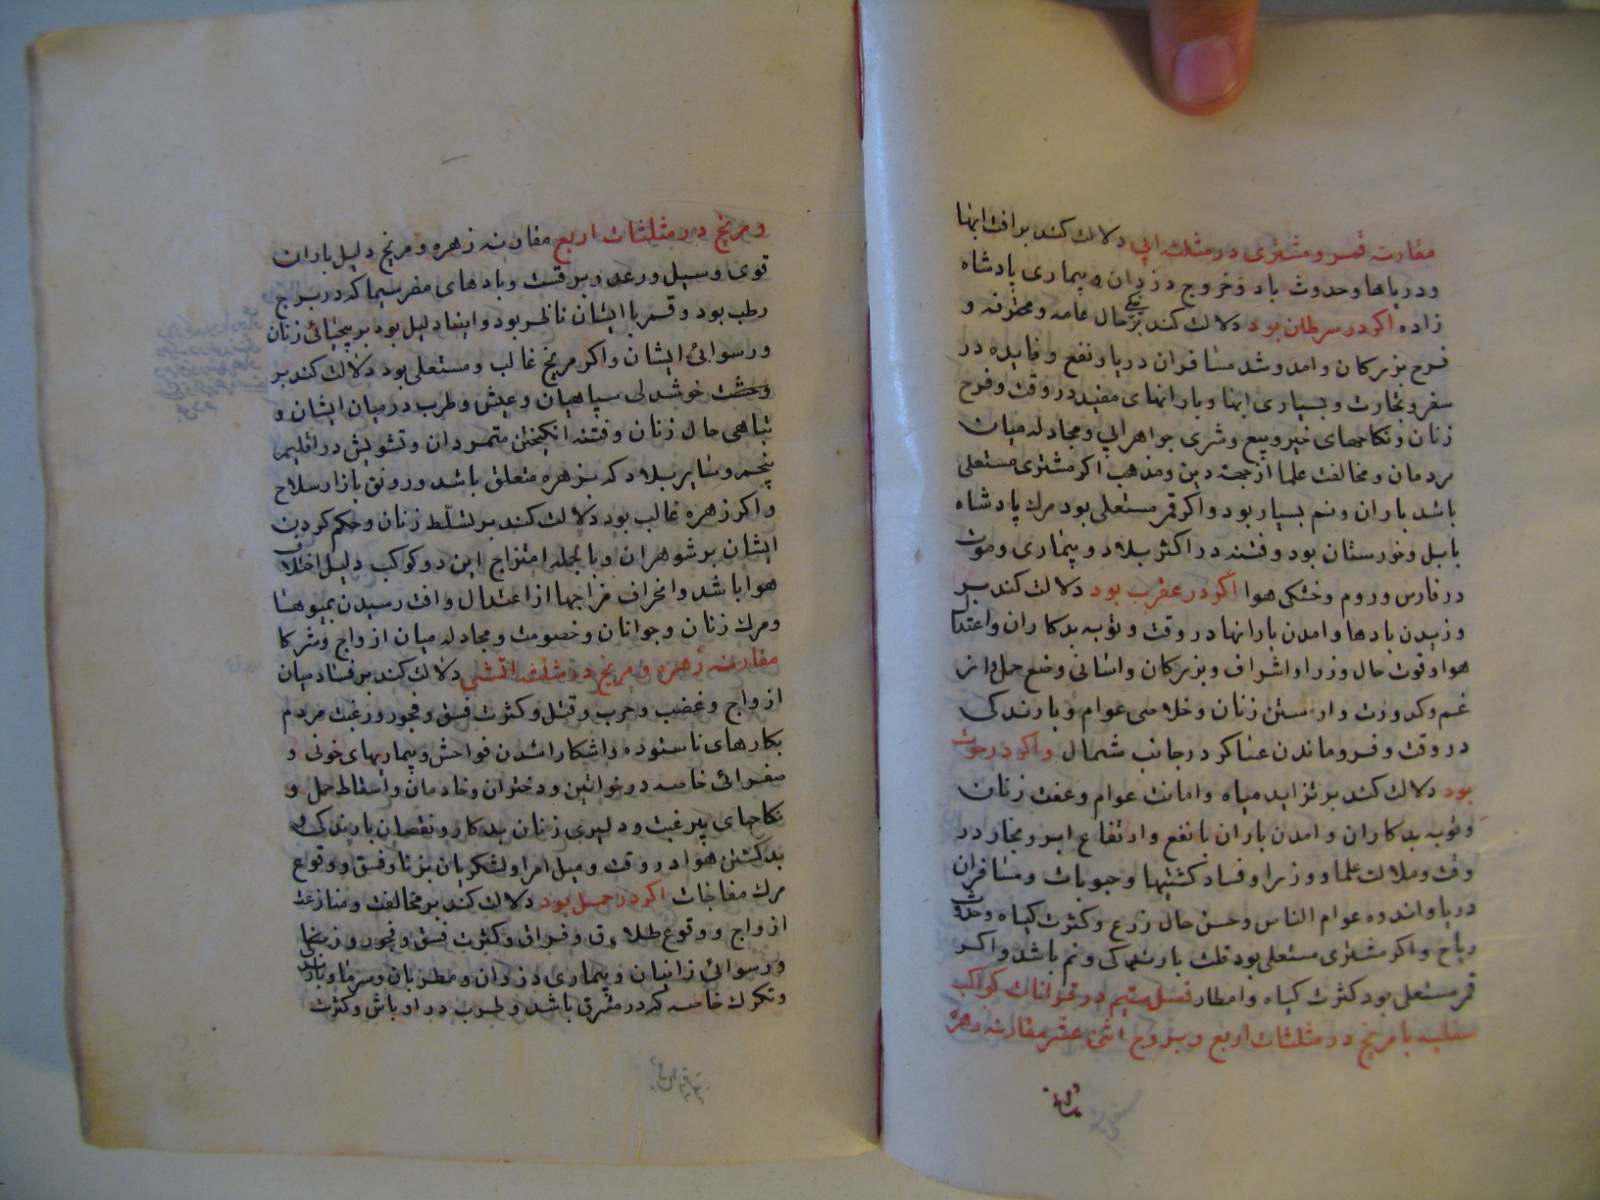 مقارنه قمر و مشتری در مثلثه ابی دلالت کند بر افت ابها
و دریاها و حدوث باد و خروج دزدان و بیماری پادشاه
زاده اکر در سرطان بود دلالت کند بر نیکی حال عامه و محترفه و
فرح بزرکان و امد و شد مسافران دریا و نفع و فایده در
سفر و تجارت و بسیاری ابها و بارانهای مفید در وقت و فرح
زنان و نکاحهای خیر و بیع و شری جواهر ابی و مجادله میان
مردمان و مخالفت علما از جهة دین و مذهب اکر مشتری مستعلی
باشد باران و نم بسیار بود و اکر قمر مستعلی بود مرك پادشاه
بابل و خورستان بود و فتنه در اکثر بلاد و بیماری و موت
در فارس و روم و خشکی هوا اکر در عقرب بود دلالت کند بر
وزیدن بادها و امدن بارانها در وقت و توبه بدکاران و اعتدال
هوا و قوت حال وزرا و اشراف و بزرکان و اسانی وضع حمل و از
غم و کدورت وارستن زنان و خلاصی عوام و بارندکی
در وقت و فرو ماندن عساکر در جانب شمال و اکر در حوت
بود دلالت کند بر تزاید میاه و امانت عوام و عفت زنان
و توبه بدکاران و امدن باران با نفع و ارتفاع ابر و بخار در
وقت و ملالت علما و وزیرا و فساد کشتیها و حبوبات و مسافران
دریا و اندوه عوام الناس و حسن حال زرع و کثرت کیاه و حدوث
ریاح و اکر مشتری مستعلی بود قلت بارندکی و نم باشد و اکر
قمر مستعلی بود کثرت کیاه و امطار فصل در قرانات کواکب
سفلیه با مریخ در مثلثات اربع و بروج اثنی عشر مقارنه زهره
و مریخ در مثلثات اربع مقارنه زهره و مریخ دلیل باران
قوی و سیل و رعد و برقست و بادهای مضر سیما که در برج
رطب بود و قمر با ایشان ناظر بود و ایضا دلیل بود بر بیحیائی زنان
و رسوائی ایشان و اکر مریخ غالب و مستعلی بود دلالت کند بر
وحشت خوشدلی سپاهیان و عیش و طرب در میان ایشان و
تباهی حال زنان و فتنه انکیختن متمردان و تشویش در اقلیم
پنجم و سایر بلاد که بزهره متعلق باشد و رونق بازار سلاح
و اکر زهره غالب بود دلالت کند بر تسلّط زنان و حکم کردن
ایشان بر شوهران و بالجمله امتزاج این دو کوکب دلیل اختلاف
هوا باشد و انحراف مزاجها از اعتدال و افت رسیدن بمیوها
و مرك زنان و جوانان و خصومت و مجادله میان ازواج و شرکا
مقارنه زهره و مریخ در مثلثه اتشی دلالت کند بر فساد میان
ازواج و غضب و حرب و قتل و کثرت فسق و فجور و رغبت مردم
بکارهای ناستوده و اشکارا شدن فواحش و بیماریهای خونی و
صفرائی خاصه در خواتین و دختران و خادمان و اسقاط حمل و
نکاحهای بیرغبت و دلیری زنان بدکار و نقصان بارندکی و
بد کشتن هوا در وقت و میل امرا و لشکریان بزنا و فسق و وقوع
مرك مفاجات اکر در حمل بود دلالت کند بر مخالفت و منازعت
ازواج و وقوع طلاق و فراق و کثرت فسق و فجور و زنا
و رسوائی زانیان و بیماری دزدان و مطربان و سرما و باد
و تکرك خاصه که در مشرق باشد و طرب در اوباش و کثرت